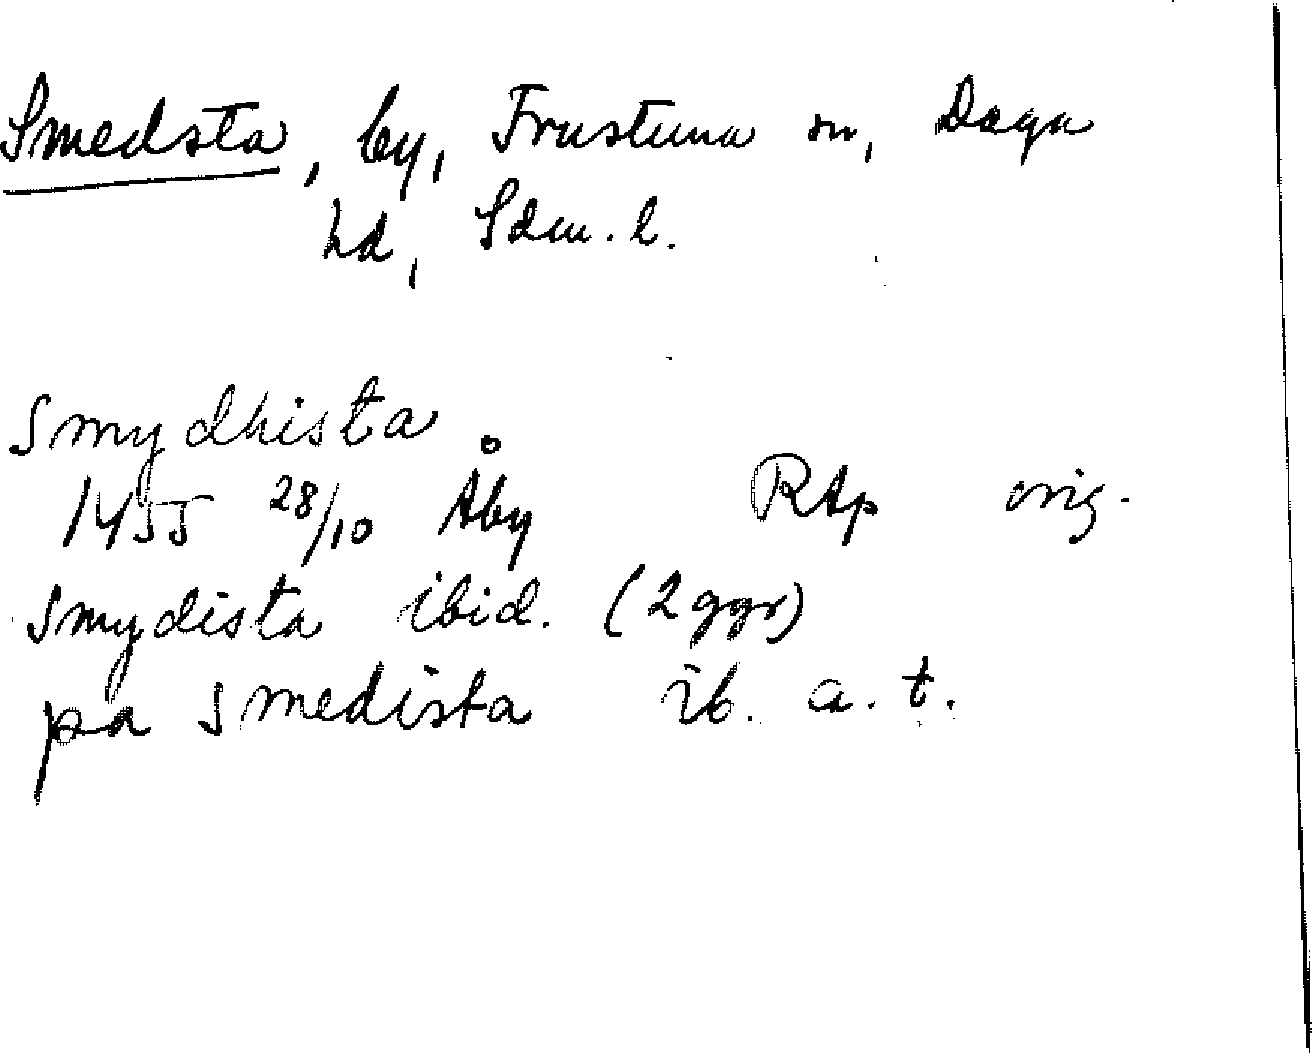 Smedsta, by, Frustuna sn, Daga
hd, Sdm. l.
Smydhista
1455 28/10 Åby RAp orig.
Smydista ibid. (2 ggr)
pa Smedista ib. a. t.